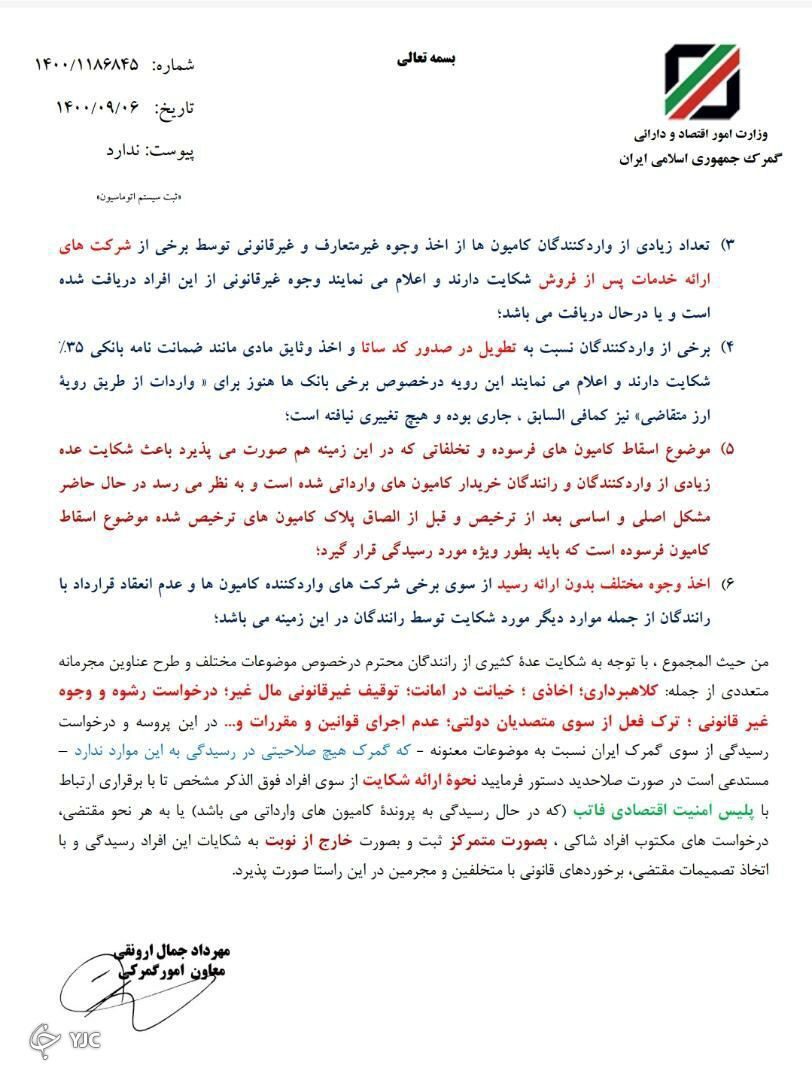 بسمه تعالی
شماره: ۱۴۰۰/۱۱۸۶۸۴۵
تاریخ: ۱۴۰۰/۰۹/۰۶
پیوست: ندارد
«ثبت سیستم اتوماسیون»
وزارت امور اقتصاد و دارائی
گمرک جمهوری اسلامی ایران
۳) تعداد زیادی از واردکنندگان کامیون ها از اخذ وجوه غیرمتعارف و غیرقانونی توسط برخی از شرکت های
ارائه خدمات پس از فروش شکایت دارند و اعلام می نمایند وجوه غیرقانونی از این افراد دریافت شده
است و یا درحال دریافت می باشد؛
۴) برخی از واردکنندگان نسبت به تطویل در صدور کد ساتا و اخذ وثایق مادی مانند ضمانت نامه بانکی ۳۵٪
شکایت دارند و اعلام می نمایند این رویه درخصوص برخی بانک ها هنوز برای « واردات از طریق رویۀ
ارز متقاضی» نیز کمافی السابق ، جاری بوده و هیچ تغییری نیافته است؛
۵) موضوع اسقاط کامیون های فرسوده و تخلفاتی که در این زمینه هم صورت می پذیرد باعث شکایت عده
زیادی از واردکنندگان و رانندگان خریدار کامیون های وارداتی شده است و به نظر می رسد در حال حاضر
مشکل اصلی و اساسی بعد از ترخیص و قبل از الصاق پلاک کامیون های ترخیص شده موضوع اسقاط
کامیون فرسوده است که باید بطور ویژه مورد رسیدگی قرار گیرد؛
۶) اخذ وجوه مختلف بدون ارائه رسید از سوی برخی شرکت های واردکننده کامیون ها و عدم انعقاد قرارداد با
رانندگان از جمله موارد دیگر مورد شکایت توسط رانندگان در این زمینه می باشد؛
من حیث المجموع ، با توجه به شکایت عدۀ کثیری از رانندگان محترم درخصوص موضوعات مختلف و طرح عناوین مجرمانه
متعددی از جمله: کلاهبرداری؛ اخاذی ؛ خیانت در امانت؛ توقیف غیرقانونی مال غیر؛ درخواست رشوه و وجوه
غیر قانونی ؛ ترک فعل از سوی متصدیان دولتی؛ عدم اجرای قوانین و مقررات و... در این پروسه و درخواست
رسیدگی از سوی گمرک ایران نسبت به موضوعات معنونه - که گمرک هیچ صلاحیتی در رسیدگی به این موارد ندارد –
مستدعی است در صورت صلاحدید دستور فرمایید نحوۀ ارائه شکایت از سوی افراد فوق الذکر مشخص تا با برقراری ارتباط
با پلیس امنیت اقتصادی فاتب (که در حال رسیدگی به پروندۀ کامیون های وارداتی می باشد) یا به هر نحو مقتضی،
درخواست های مکتوب افراد شاکی ، بصورت متمرکز ثبت و بصورت خارج از نوبت به شکایات این افراد رسیدگی و با
اتخاذ تصمیمات مقتضی، برخوردهای قانونی با متخلفین و مجرمین در این راستا صورت پذیرد.
مهرداد جمال ارونقی
معاون امور گمرکی
YJC